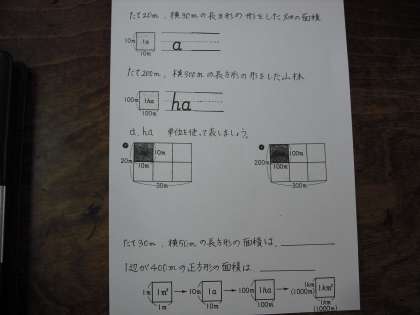 たて20m、横30mの長方形の形をした畑の面積
10m 1a a
10m
たて200m、横300mの長方形の形をした山林
100m 1ha ha
100m
a、ha 単位を使って表しましょう。
10m 100m
20m 10m 200m 100m
30m 300m
たて30m、横50mの長方形の面積は、
1辺が400mの正方形の面積は
1m 1m² → 10m 1a → 100m 1ha → 1km (1000m) 1km²
1m 10m 100m 1km (1000m)